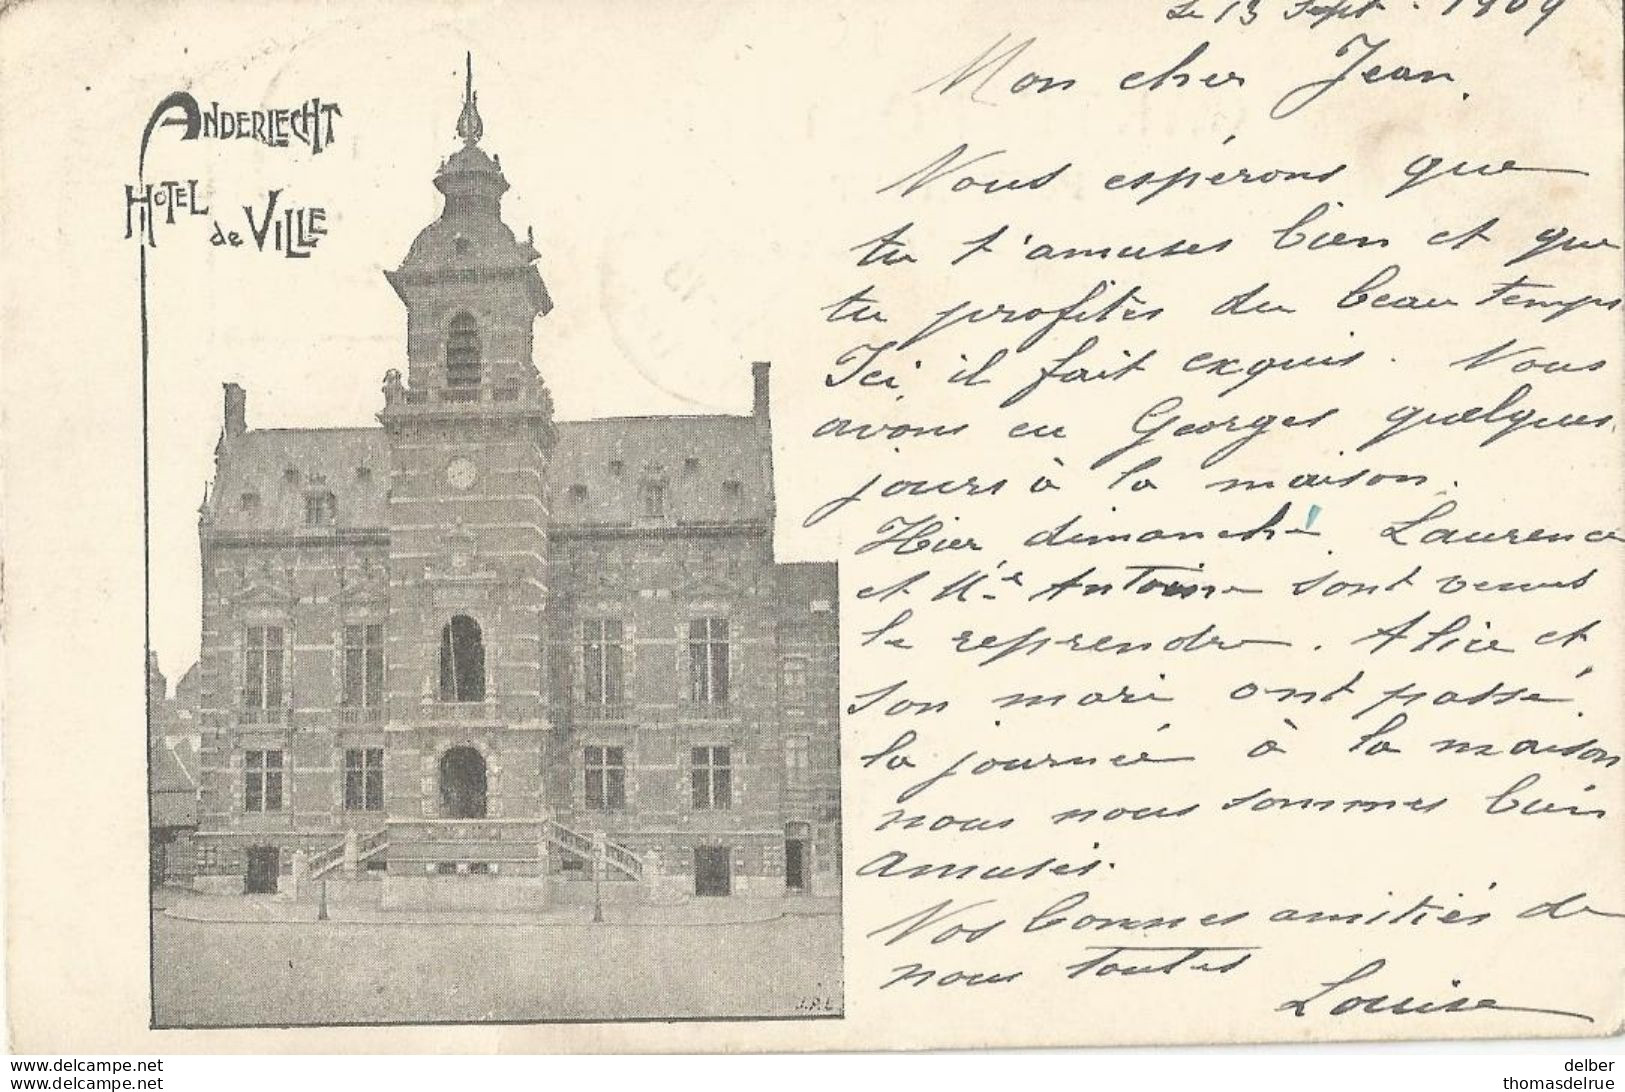 ANDERLECHT
HOTEL
de VILLE
Le 13 Sept. 1909
Mon cher Jean,
Nous espérons que
tu t'amuses bien et que
tu profites du beau temps
Ici il fait exquis. Nous
avons eu Georges quelques
jours à la maison.
Hier, dimanche Laurence
et Mr Antoine sont venus
le reprendre. Alice et
son mari ont passé
la journée à la maison
nous nous sommes bien
amusés.
Nos bonnes amitiés de
nous toutes
Louise
J.P.L
www.delcampe.net
www.delcampe.net
delber
thomasdelrue